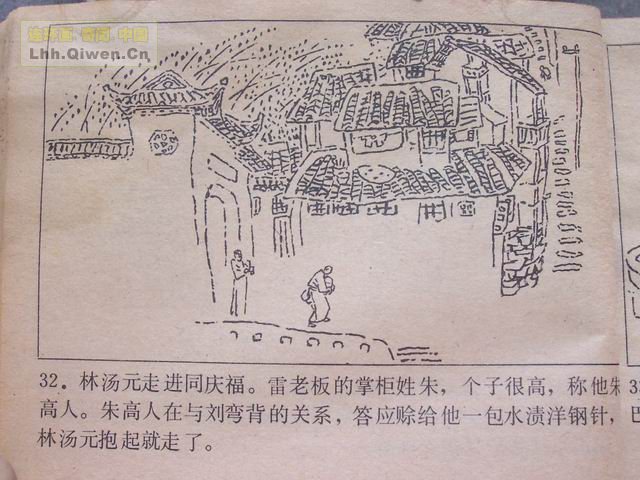 连环画·奇闻·中国
Lhh.Qiwen.Cn
32。林汤元走进同庆福。雷老板的掌柜姓朱，个子很高，称他朱
高人。朱高人在与刘弯背的关系，答应赊给他一包水渍洋钢针，
林汤元抱起就走了。
3